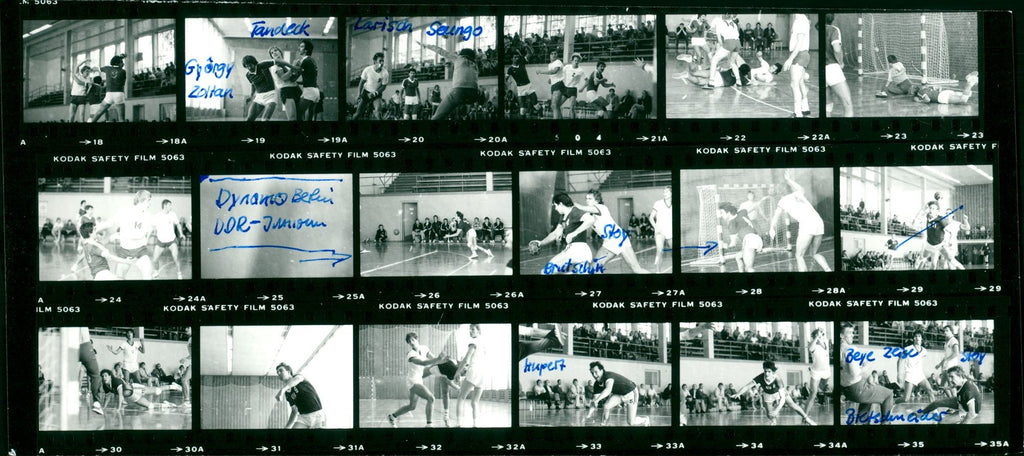 5063
Tandeck
György
Zoltan
Larisch Soungo
A →18 →18A →19 →19A →20 →20A 5 0 4 →21A →22 →22A →23 →23
KODAK SAFETY FILM 5063 KODAK SAFETY FILM 5063 KODAK SAFETY FILM 5063 KODAK SAFETY FILM 5063 KODAK SAFETY F
Dynamo Berlin
DDR-
Stoy
A →24 →24A →25 →25A →26 →26A →27 →27A →28 →28A →29 →29
ILM 5063 KODAK SAFETY FILM 5063 KODAK SAFETY FILM 5063 KODAK SAFETY FILM 5063 KODAK SAFETY FILM 5063
Hupert
Beye Zeise Stoy
Bretschneider
A →30 →30A →31 →31A →32 →32A →33 →33A →34 →34A →35 →35A